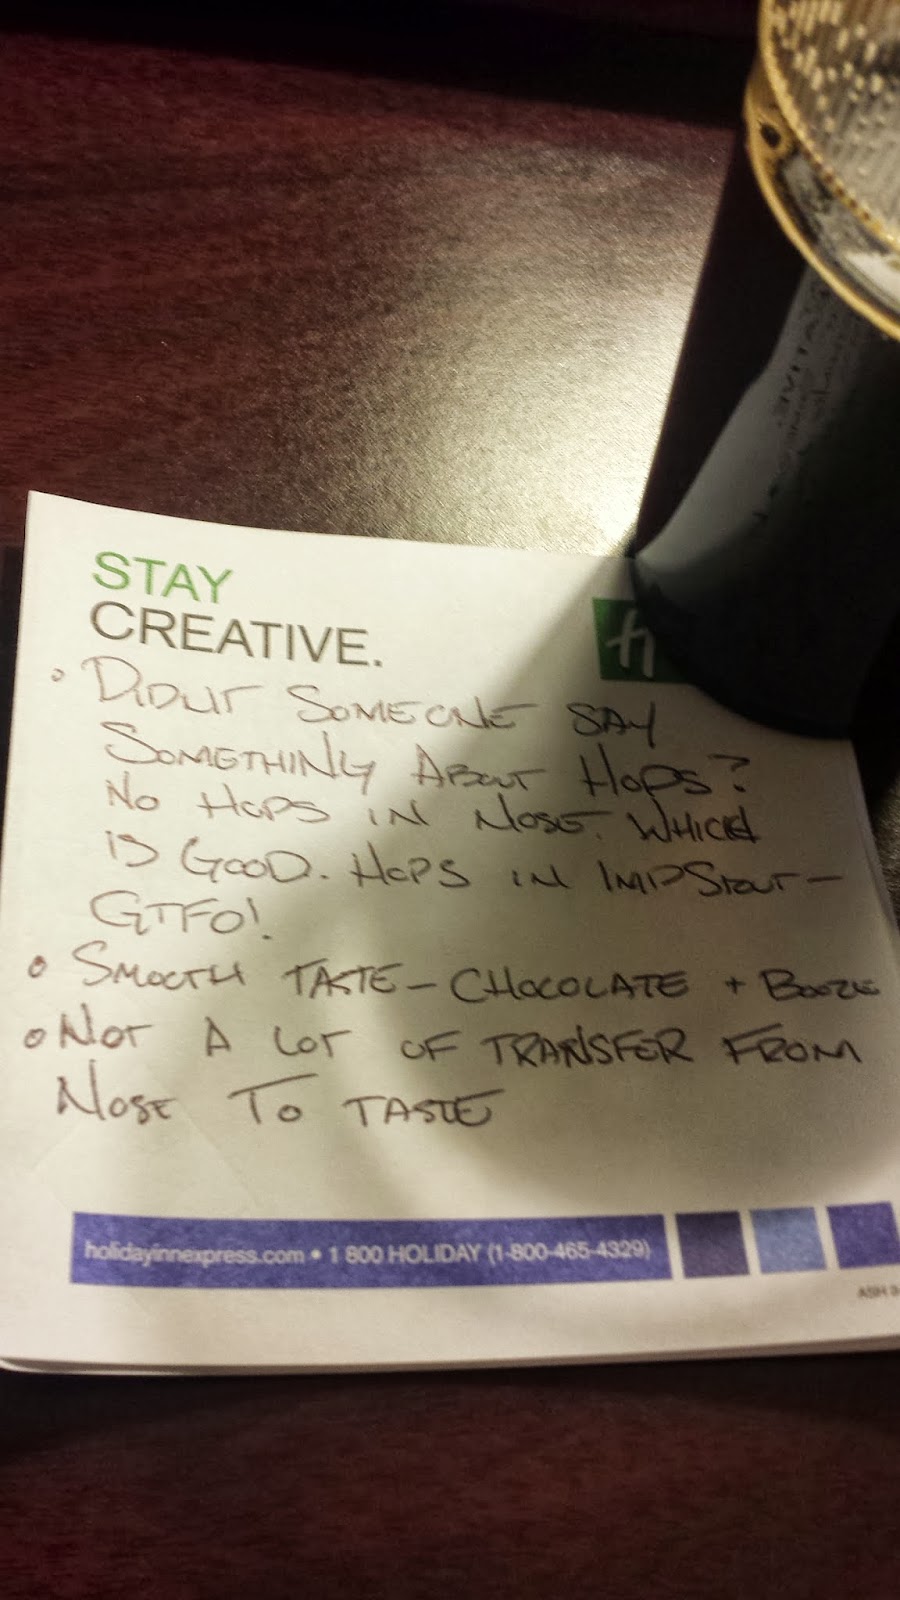 STAY
CREATIVE.
• DIDNT SOMEONE SAY
SOMETHING ABOUT HOPS?
NO HOPS IN NOSE. WHICH
IS GOOD. HOPS IN IMPSTOUT -
GTFO!
• SMOOTH TASTE - CHOCOLATE + BOOZE
• NOT A LOT OF TRANSFER FROM
NOSE TO TASTE
holidayinnexpress.com • 1 800 HOLIDAY (1-800-465-4329)